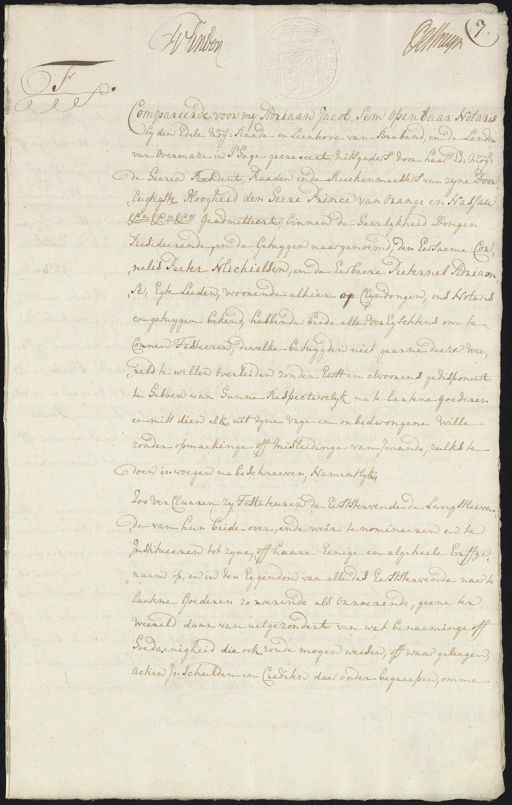 7.
F
Compareerde voor my Adriaan Jacob Sem Openbaar Notaris
by den Edele Hog: Raade en Leenhove van Braband, ende Lande
van Overmaze in S'Hage geexerceert, mitsgaders door haar Ed: Hog:
de Heeren President, Raaden ende Reekenmeesters van zyne Door
lugtigste Hoogheid den Heere Prince van Orange en Nassau
geadmitteert, binnen de Heerlykheid Dongen
Resideerende, ende getuygen naargenoemd, Den Eersaeme Cor,,
nelis Peeter Michielsen, ende Eerbaere Pieternel Adriaan
Se, Egte Lieden, woonende alhier op Clyndongen, ons Notaris
en getuygen bekend, hebbende beide alle Vereyschtens om te
Connen Testeeren, dewelke betuygden niet gaarne deeze Wee,,
reld te willen overleiden zonder Eerst en alvoorens gedisponeert
te hebben van hunne Respectivelyk na te laatene goederen
en mitsdien elk uit zyne vrye en onbedwongene Wille
zonder opmaakinge off misleidinge van Jmande, zulks te
doen in voegen na beschreeven, Namentlyk;
Zoo verClaaren Zy Testateuren de Eerststervende de Langstleeven
de van hun beide over, ende weer te nomineeren en te
Institueeren tot zyne, off haare Eenige en algeheele Erffge,,
naam op, en in den Eygendom van alle des Eerststervende naer te
laatene Goederen zo roerende als Onroerende, geene ter
Weereld daar van uitgezondert van wat benaeminge off
Hoedaenigheid die ook zoude mogen weesen, off waar geleegen,
Actien Inschulden en Crediten daar onder begreepen, omme